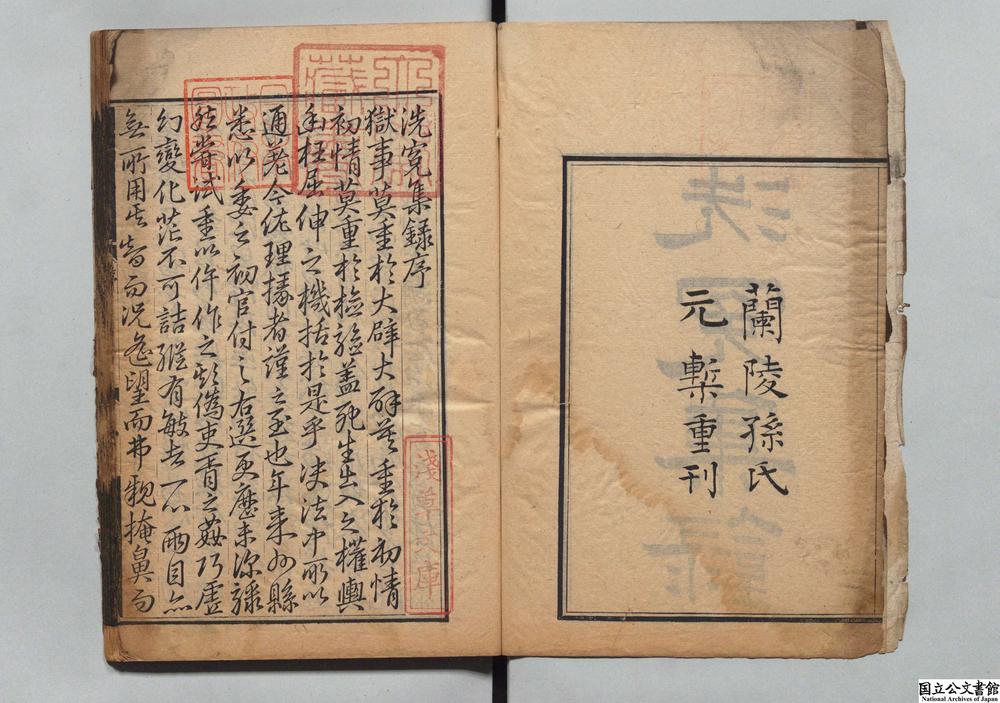 蘭陵孫氏
元槧重刊
洗冤集錄序
獄事莫重於大辟大辟莫重於初情
初情莫重於檢驗蓋死生出入之權輿
幽枉屈伸之機括於是乎決法中所以
通差今佐理掾者謹之至也年來州縣
悉以委之初官付之右選更歷未深驟
然嘗試重以仵作之欺偽吏胥之姦巧虛
幻變化茫不可詰縱有敏者一心兩目亦
無所用其智而況遙望而弗親掩鼻而
淺草文庫
国立公文書館
National Archives of Japan